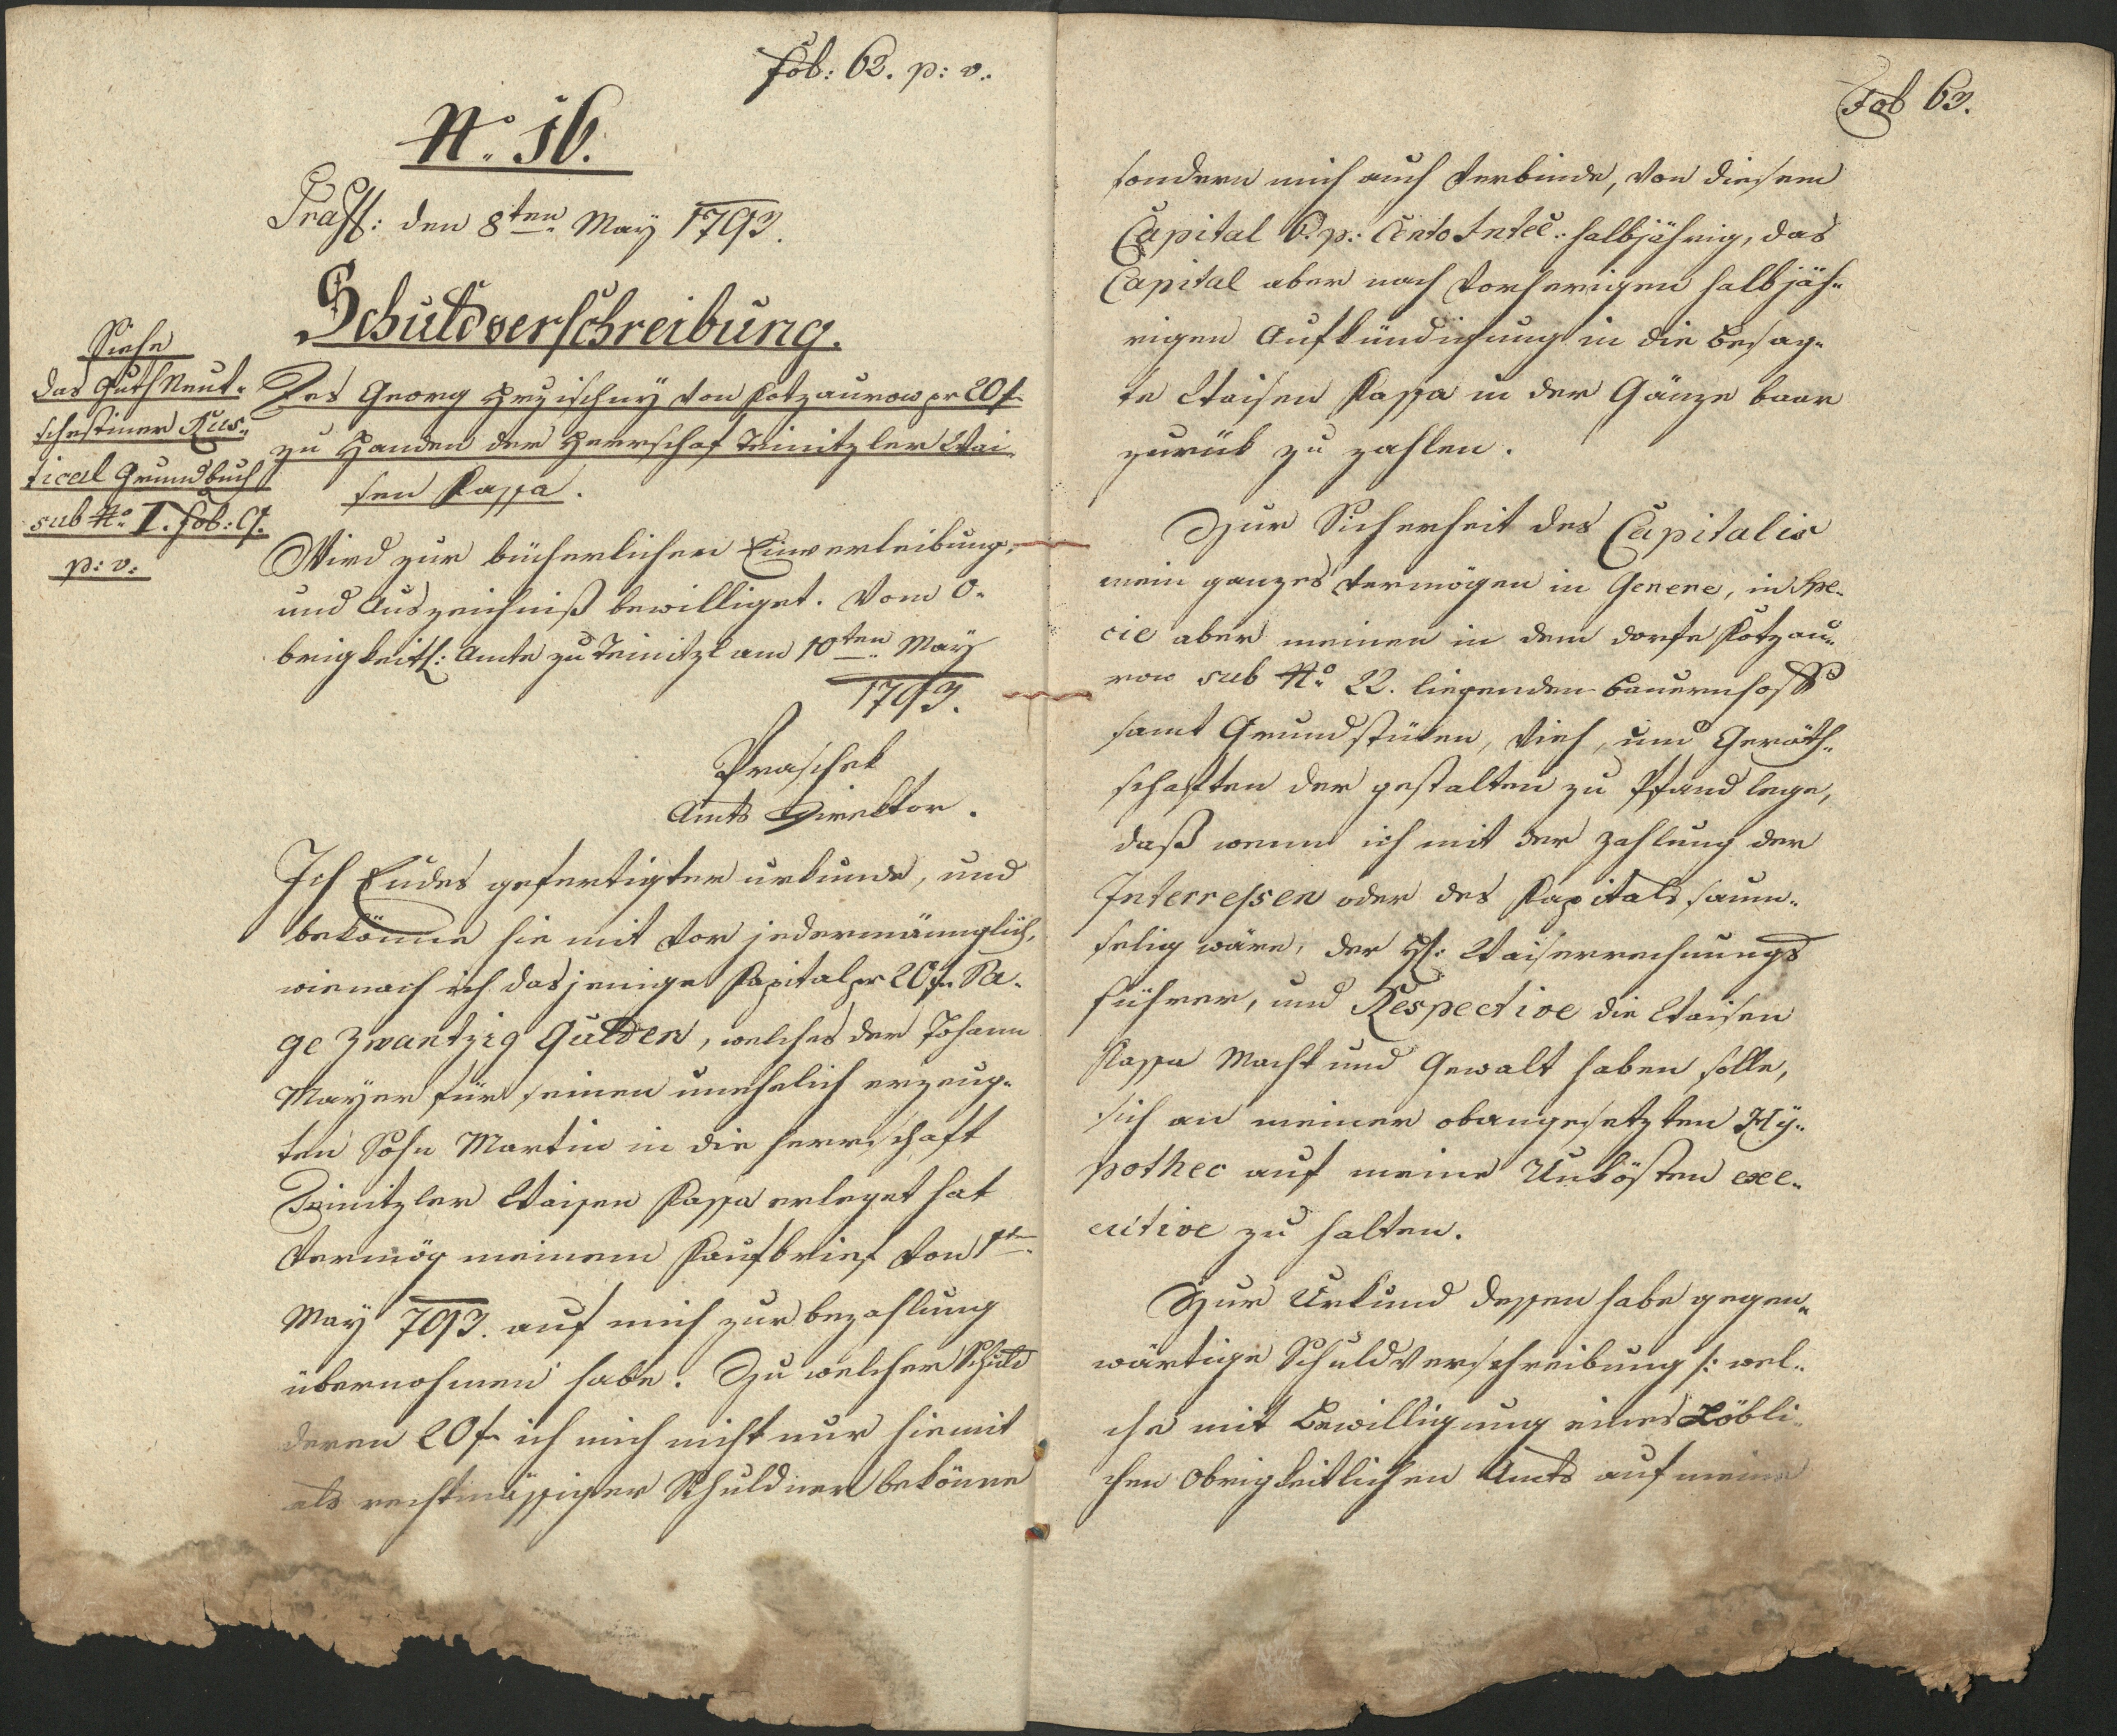 Fol: 62. p: v.
No. 16.
Praes: den 8ten May 1793.
Schuldverschreibung.
Siehe
das Guth Neut-
schestiner Rus-
tical Grundbuch
sub No. I. Fol: 9.
p: v:
Des Georg Hrzischny von Kotzaurow pr 20 f
zu Handen der Herrschaf Teinitzler Wai-
sen Kassa.
Wird zur bücherlichen Einverleibung,
und Auszeichniß bewilliget. Vom O-
brigkeitl: Amte zu Teinitzl am 10ten May
1793.
Praschek
Amts Direktor.
Ich Endes gefertigter urkunde, und
bekönne hie mit vor jedermänniglich,
wienach ich dasjenige Kapital pr 20 f. Sa-
ge Zwantzig Gulden, welches der Johann
Mayer für seinen unehelich erzeug-
ten Sohn Martin in die Herrschaft
Teinitzler Waisen Kassa erleget hat
vermög meinem Kaufbrief von 1ten
May 793. auf mich zur bezahlung
übernohmen habe. Zu welcher Schuld
deren 20 f ich mich nicht nur hiemit
als rechtmässiger Schuldner bekönne
Fol 63.
sondern mich auch verbinde, von diesem
Capital 6. p: Cento Intee: halbjährig, das
Capital aber nach vorherigen halbjäh-
rigen Aufkündigung in die besag-
te Waisen Kassa in der Gänze baar
zurük zu zahlen.
Zur Sicherheit des Capitalis
mein ganzes vermögen in Genere, in Spe-
cie aber meinen in dem dorfe Kotzau-
row sub No. 22. liegenden bauernhoff
samt Grundstüken, Vieh, und Geräth-
schaften der gestalten zu Pfand lege,
daß wenn ich mit der Zahlung der
Interressen oder des Kapitals saum-
selig wäre, der H: Waisenrechnungs
führer, und Respective die Waisen
Kassa Macht und Gewalt haben solle,
sich an meiner obangesetzten Hy-
pothec auf meine Unkösten exe-
cutive zu halten.
Zur Urkund dessen habe gegen-
wärtige Schuldverschreibung /: wel-
che mit Bewilligung eines Löbli-
chen Obrigkeitlichen Amts auf meine